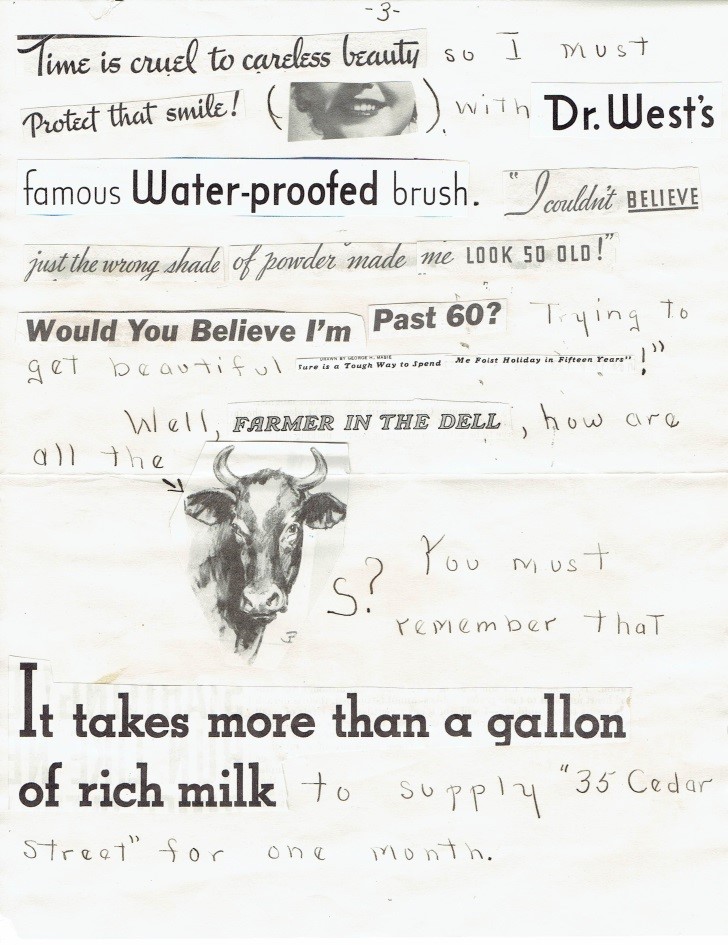 -3-
Time is cruel to careless beauty so I must
Protect that smile! ( ) with Dr. West's
famous Water-proofed brush. "I couldn't BELIEVE
just the wrong shade of powder made me LOOK SO OLD!"
Would You Believe I'm Past 60? Trying to
DRAWN BY GEORGE H. MABIE
get beautiful ture is a Tough Way to Spend Me Foist Holiday in Fifteen Years" !"
Well, FARMER IN THE DELL, how are
all the
s? You must
remember that
It takes more than a gallon
of rich milk to supply "35 Cedar
Street" for one month.